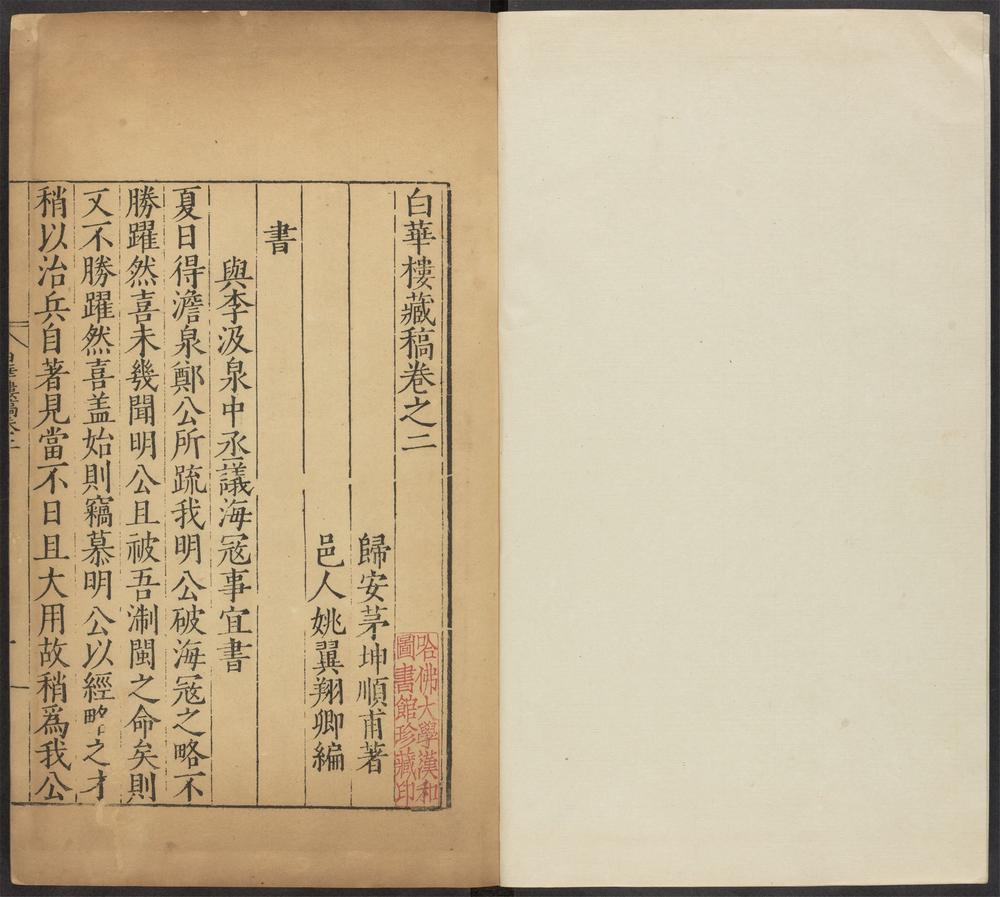 白華樓藏稿卷之二
歸安茅坤順甫著
邑人姚翼翔卿編
書
與李汲泉中丞議海冦事宜書
夏日得澹泉鄭公所疏我明公破海冦之略不
勝躍然喜未幾聞明公且被吾淛閩之命矣則
又不勝躍然喜盖始則竊慕明公以經略之才
稍以治兵自著見當不日且大用故稍爲我公
哈佛大學漢和
圖書館珍藏印